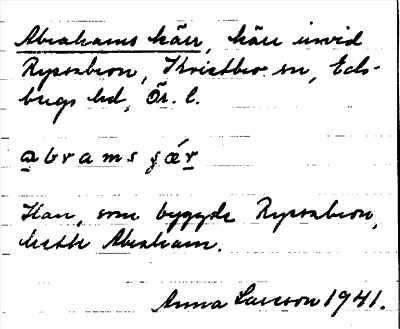 Abrahams kärr, kärr invid
Ryssabron, Kvistbro sn, Eds-
bergs hd, Ör. l.
abramsçǽr
Han, som byggde Ryssabron,
hette Abraham.
Anna Larsson 1941.